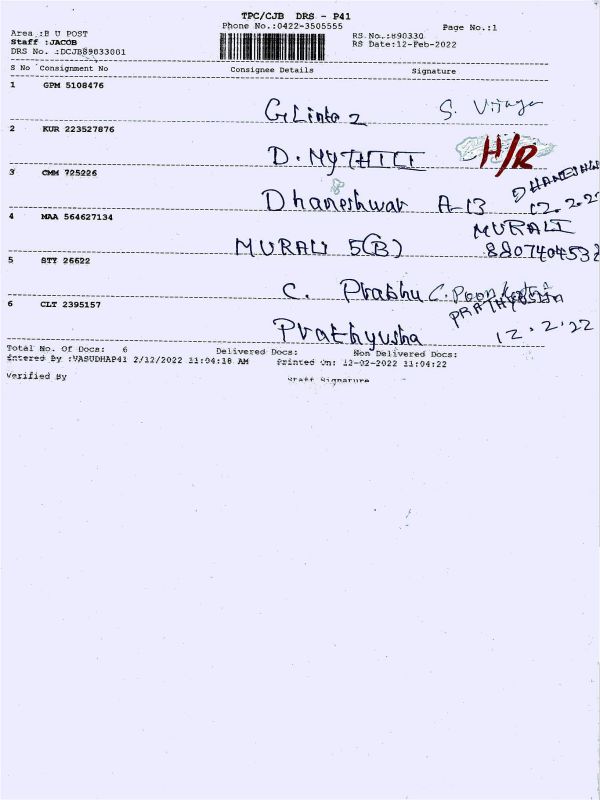 TPC/CJB DRS - P41
Phone No.:0422-3505555
Page No.:1
Area :B U POST
Staff :JACOB
DRS No. :DCJB89033001
RS No.:890330
RS Date:12-Feb-2022
S No Consignment No Consignee Details Signature
1 GPM 5108476
G Linta 2 S. Vijaya
2 KUR 223527876
D. MYTHILI H/R
3 CMM 725226
Dhaneshwar A-13
12.2.22
4 MAA 564627134
MURALI 5(B) MURALI
8807404532
5 STT 26622
C. Prabhu C.
6 CLT 2395157
Prathyusha PRATHYUSHA
12.2.22
Total No. Of Docs: 6 Delivered Docs: Non Delivered Docs:
Entered By :VASUDHAP41 2/12/2022 11:04:18 AM Printed On: 12-02-2022 11:04:22
Verified By Staff Signature